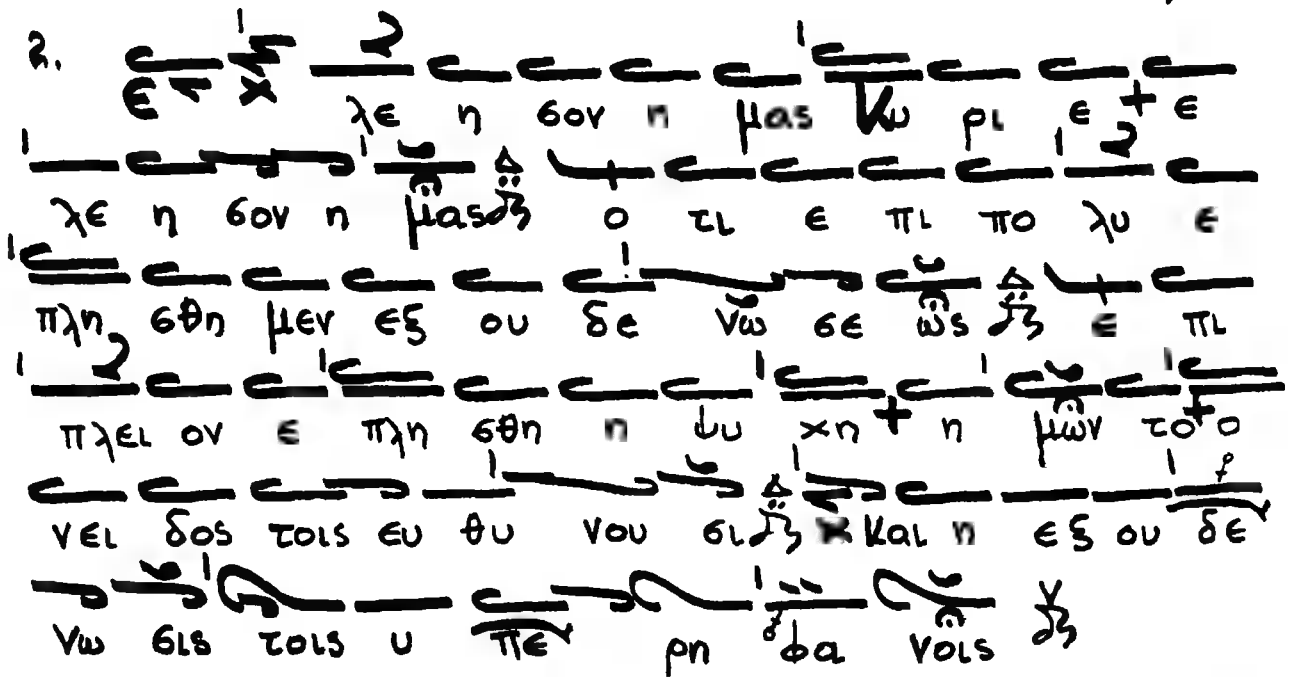 2.
ε λε η σον η μας Κυ ρι ε + ε
λε η σον η μας ο τι ε πι πο λυ ε
πλη σθη μεν εξ ου δε νώ σε ως ε πι
πλει ον ε πλη σθη η ψυ χη + η μών το + ο
νει δος τοις ευ θυ νου σι και η εξ ου δε
νω σις τοις υ πε ρη φα νοις